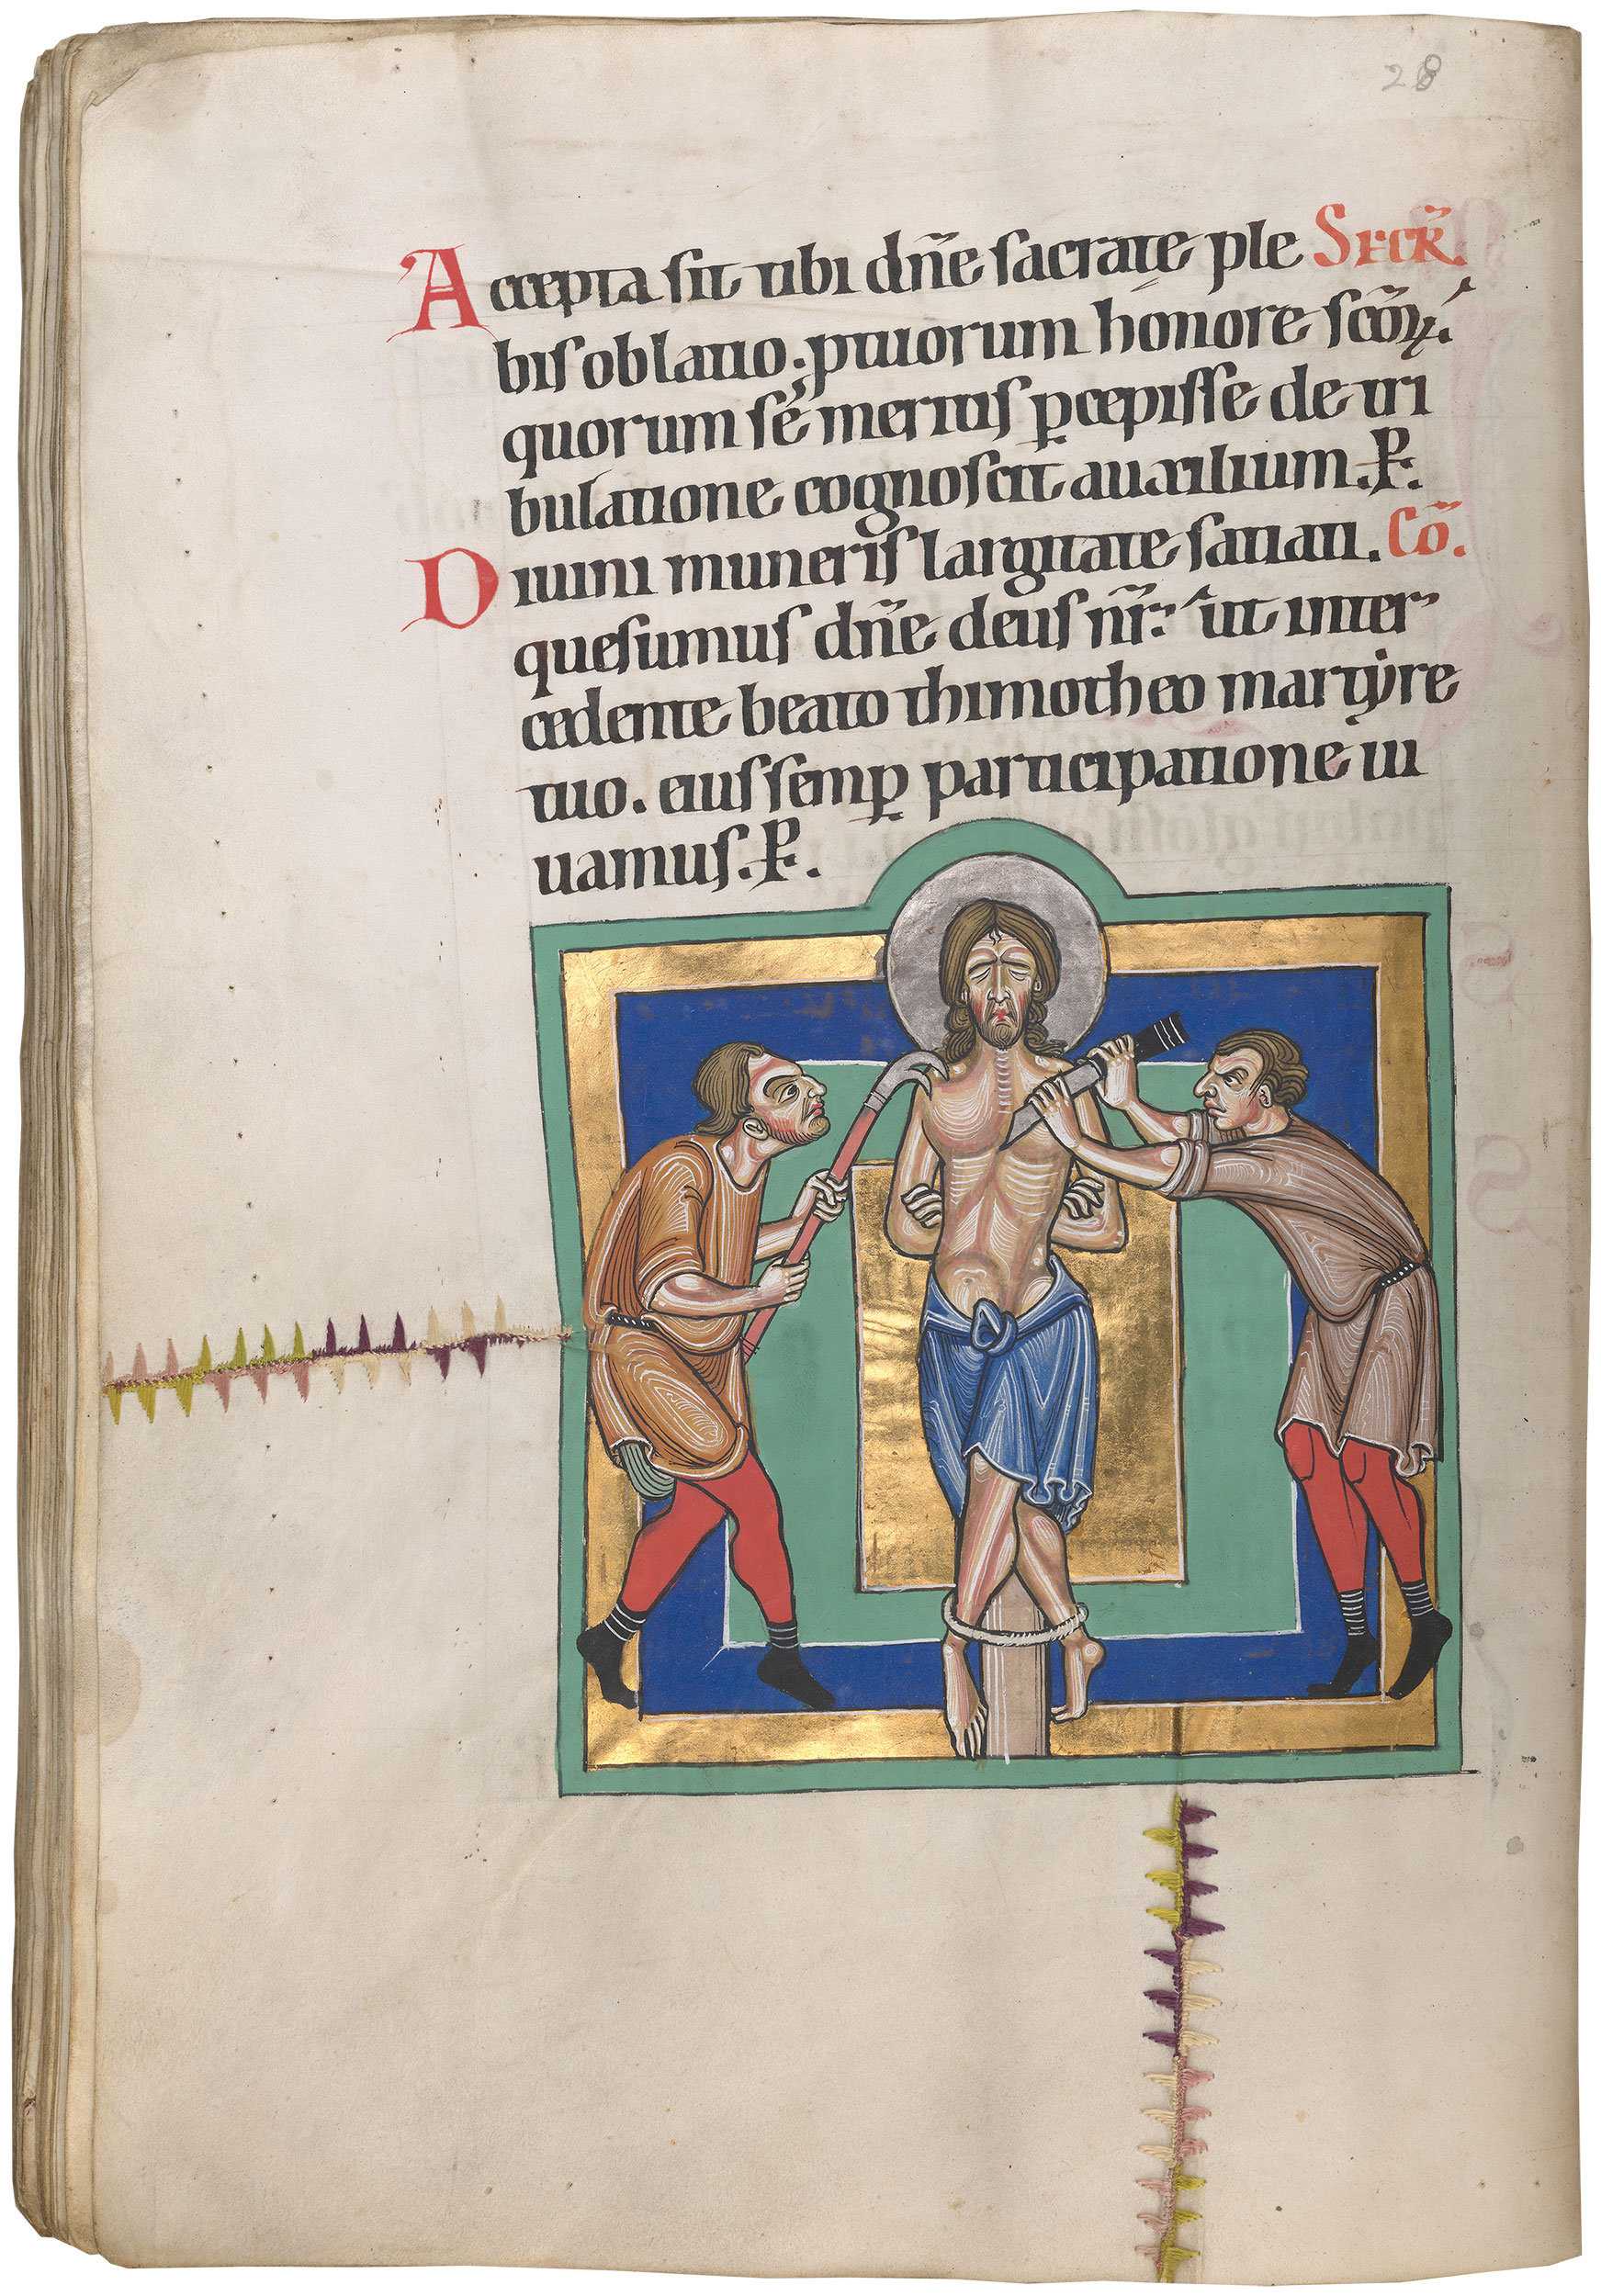 28
Accepta sit tibi dñe sacratę ple Secr̃.
bis oblatio. p tuorum honore scõꝝ.
quorum sé meritis ꝑcepisse de tri
bulatione cognoscit auxilium. P.
Diuini muneris largitate satiati. Cõ.
quesumus dñe deus nr̃. ut inter
cedente beato thimotheo martẏre
tuo. eius semꝑ participatione ui
uamus. P.